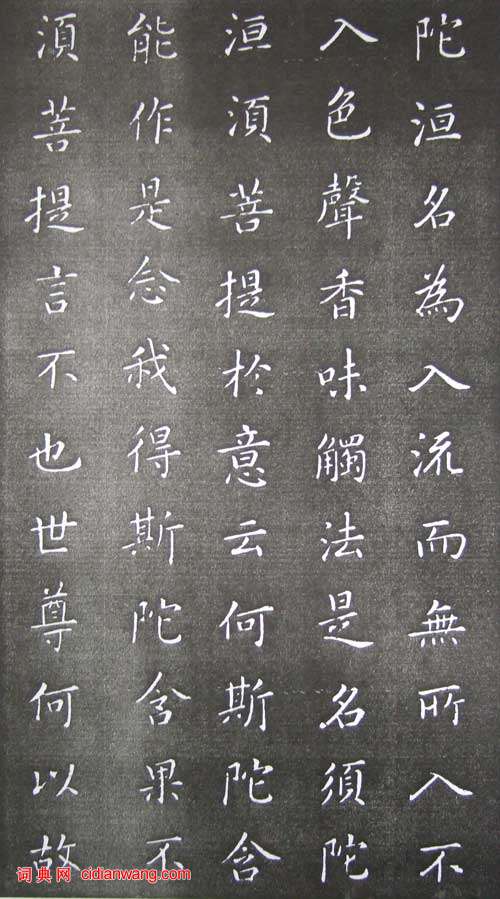 陀洹名為入流而無所入不
入色聲香味觸法是名須陀
洹須菩提於意云何斯陀含
能作是念我得斯陀含果不
須菩提言不也世尊何以故
词典网 cidianwang.com